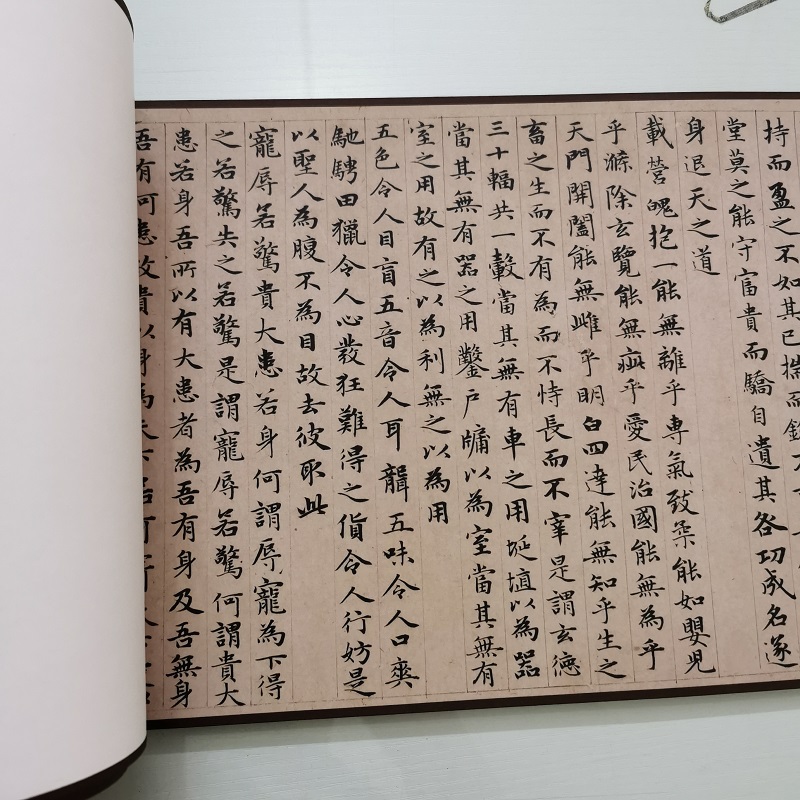 持而盈之不如其已揣而
堂莫之能守富貴而驕自遺其各功成名遂
身退天之道
載營魄抱一能無離乎專氣致柔能如嬰児
乎滌除玄覽能無疵乎愛民治國能無為乎
天門開闔能無雌乎明白四達能無知乎生之
畜之生而不有為而不恃長而不宰是謂玄德
三十輻共一轂當其無有車之用埏埴以為器
當其無有器之用鑿戶牖以為室當其無有
室之用故有之以為利無之以為用
五色令人目盲五音令人耳聾五味令人口爽
馳騁田獵令人心發狂難得之貨令人行妨是
以聖人為腹不為目故去彼取此
寵辱若驚貴大患若身何謂辱寵為下得
之若驚失之若驚是謂寵辱若驚何謂貴大
患若身吾所以有大患者為吾有身及吾無身
吾有何患故貴以身為